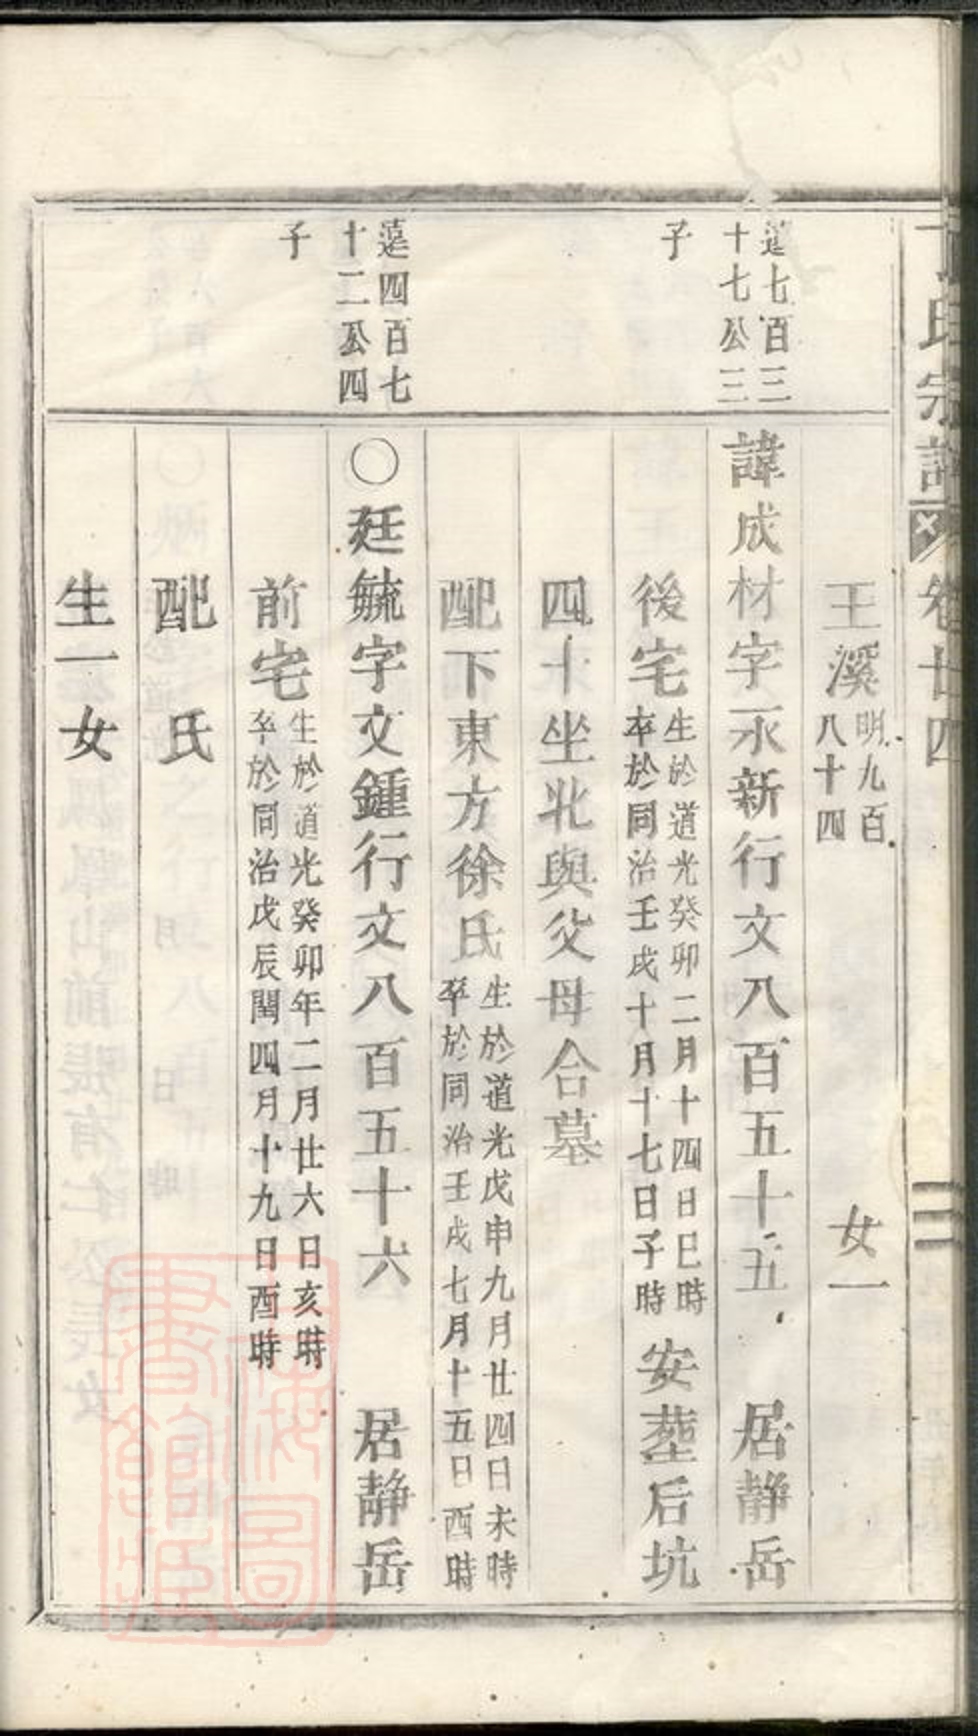 氏宗譜 卷廿四 二
王溪 明九百八十四 女一
逵七百三十七公三子
諱成材字永新行文八百五十五 居靜岳
後宅 生於道光癸卯二月十四日巳時 卒於同治壬戌十月十七日子時 安塟后坑
四十坐北與父母合墓
配下東方徐氏 生於道光戊申九月廿四日未時 卒於同治壬戌七月十五日酉時
逵四百七十二公四子
○廷毓字文鍾行文八百五十六 居靜岳
前宅 生於道光癸卯年二月廿六日亥時 卒於同治戊辰閏四月十九日酉時
配 氏
生一女
上海圖書館藏